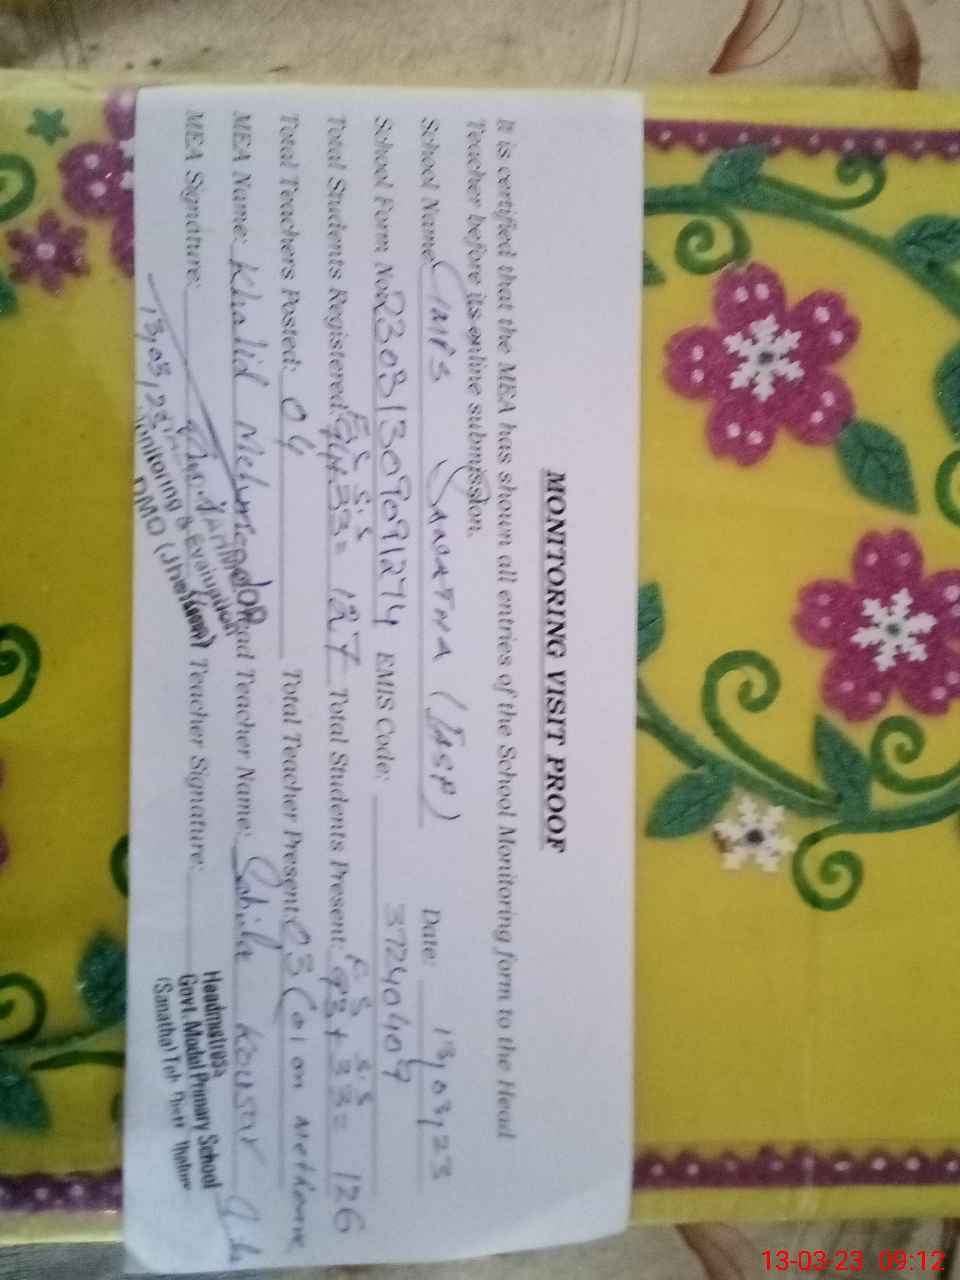 MONITORING VISIT PROOF
It is certified that the MEA has shown all entries of the School Monitoring form to the Head
Teacher before its online submission.
School Name: GMPS (ESP) Date: 13,03,23
School Form No: EMIS Code: 37240409
F.S S.S F.S S.S
Total Students Registered: 94+33= 127 Total Students Present: 93+33= 126
Total Teachers Posted: 04 Total Teacher Present: 03 (01 on
MEA Name: Khalid Mehmood Head Teacher Name: Kousar
MEA Signature: Teacher Signature:
13,03,23
Monitoring & Evaluation
DMO (Jhelum)
Headmistress
Govt. Model Primary School
13-03-23 09:12